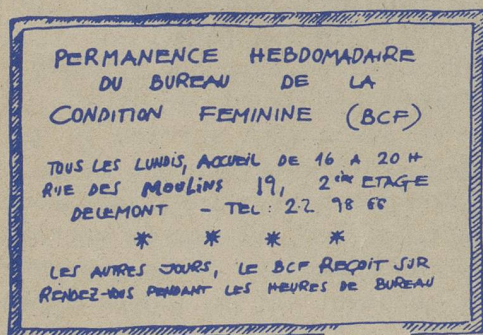 PERMANENCE HEBDOMADAIRE
DU BUREAU DE LA
CONDITION FEMININE (BCF)
TOUS LES LUNDIS, ACCUEIL DE 16 A 20 H
RUE DES MOULINS 19, 2ième ETAGE
DELEMONT - TEL: 22 98 66
* * * *
LES AUTRES JOURS, LE BCF REÇOIT SUR
RENDEZ-VOUS PENDANT LES HEURES DE BUREAU